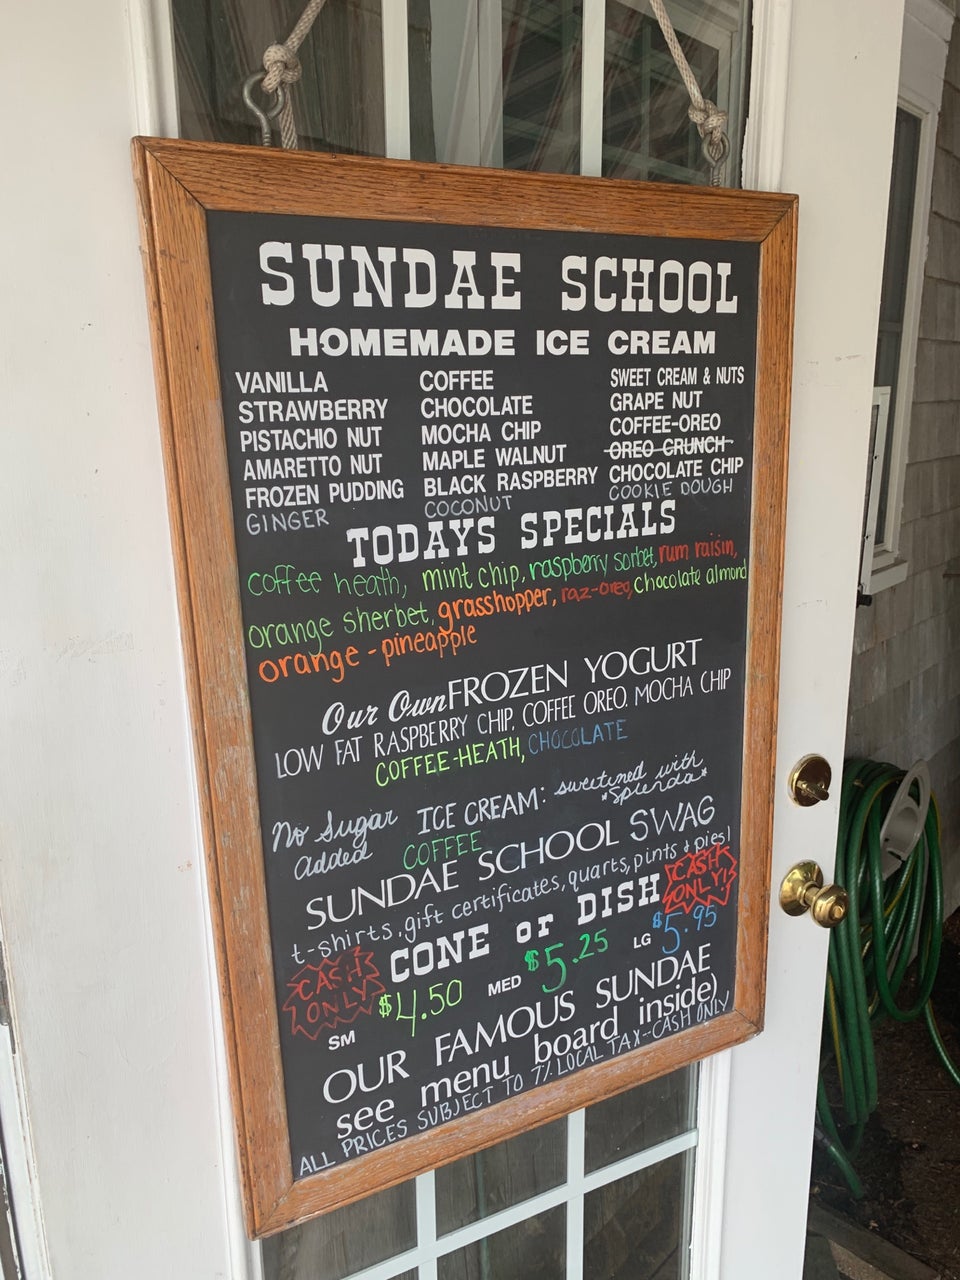 SUNDAE SCHOOL
HOMEMADE ICE CREAM
VANILLA
STRAWBERRY
PISTACHIO NUT
AMARETTO NUT
FROZEN PUDDING
GINGER
COFFEE
CHOCOLATE
MOCHA CHIP
MAPLE WALNUT
BLACK RASPBERRY
COCONUT
SWEET CREAM & NUTS
GRAPE NUT
COFFEE-OREO
OREO CRUNCH
CHOCOLATE CHIP
COOKIE DOUGH
TODAYS SPECIALS
coffee heath, mint chip, raspberry sorbet, rum raisin,
orange sherbet, grasshopper, raz-oreo, chocolate almond
orange-pineapple
Our Own FROZEN YOGURT
LOW FAT RASPBERRY CHIP, COFFEE OREO. MOCHA CHIP
COFFEE-HEATH, CHOCOLATE
No Sugar Added ICE CREAM: sweetined with *Splenda*
COFFEE
SUNDAE SCHOOL SWAG
t-shirts, gift certificates, quarts, pints & pies!
CASH ONLY!
CONE or DISH
CASH ONLY!
SM $4.50 MED $5.25 LG $5.95
OUR FAMOUS SUNDAE
see menu board inside)
ALL PRICES SUBJECT TO 7% LOCAL TAX--CASH ONLY